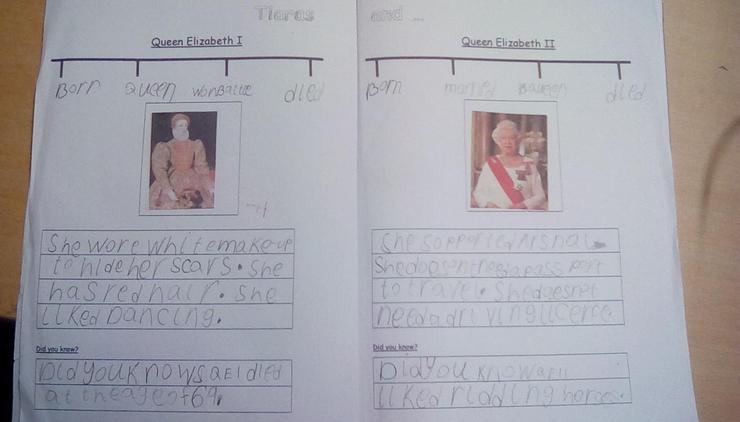 Tiaras and ...
Queen Elizabeth I
Born queen wonBattle died
She wore white make-up
to hide her scars. She
has red hair. She
liked Dancing.
Did you know?
Did you know QEI died
at the age of 69.
Queen Elizabeth II
Born married died
She sopported Arsnal
She doesn't need a pass port
to travel. She doesnet
need a driving licerce
Did you know?
Did you know QEII
liked ridding horses.